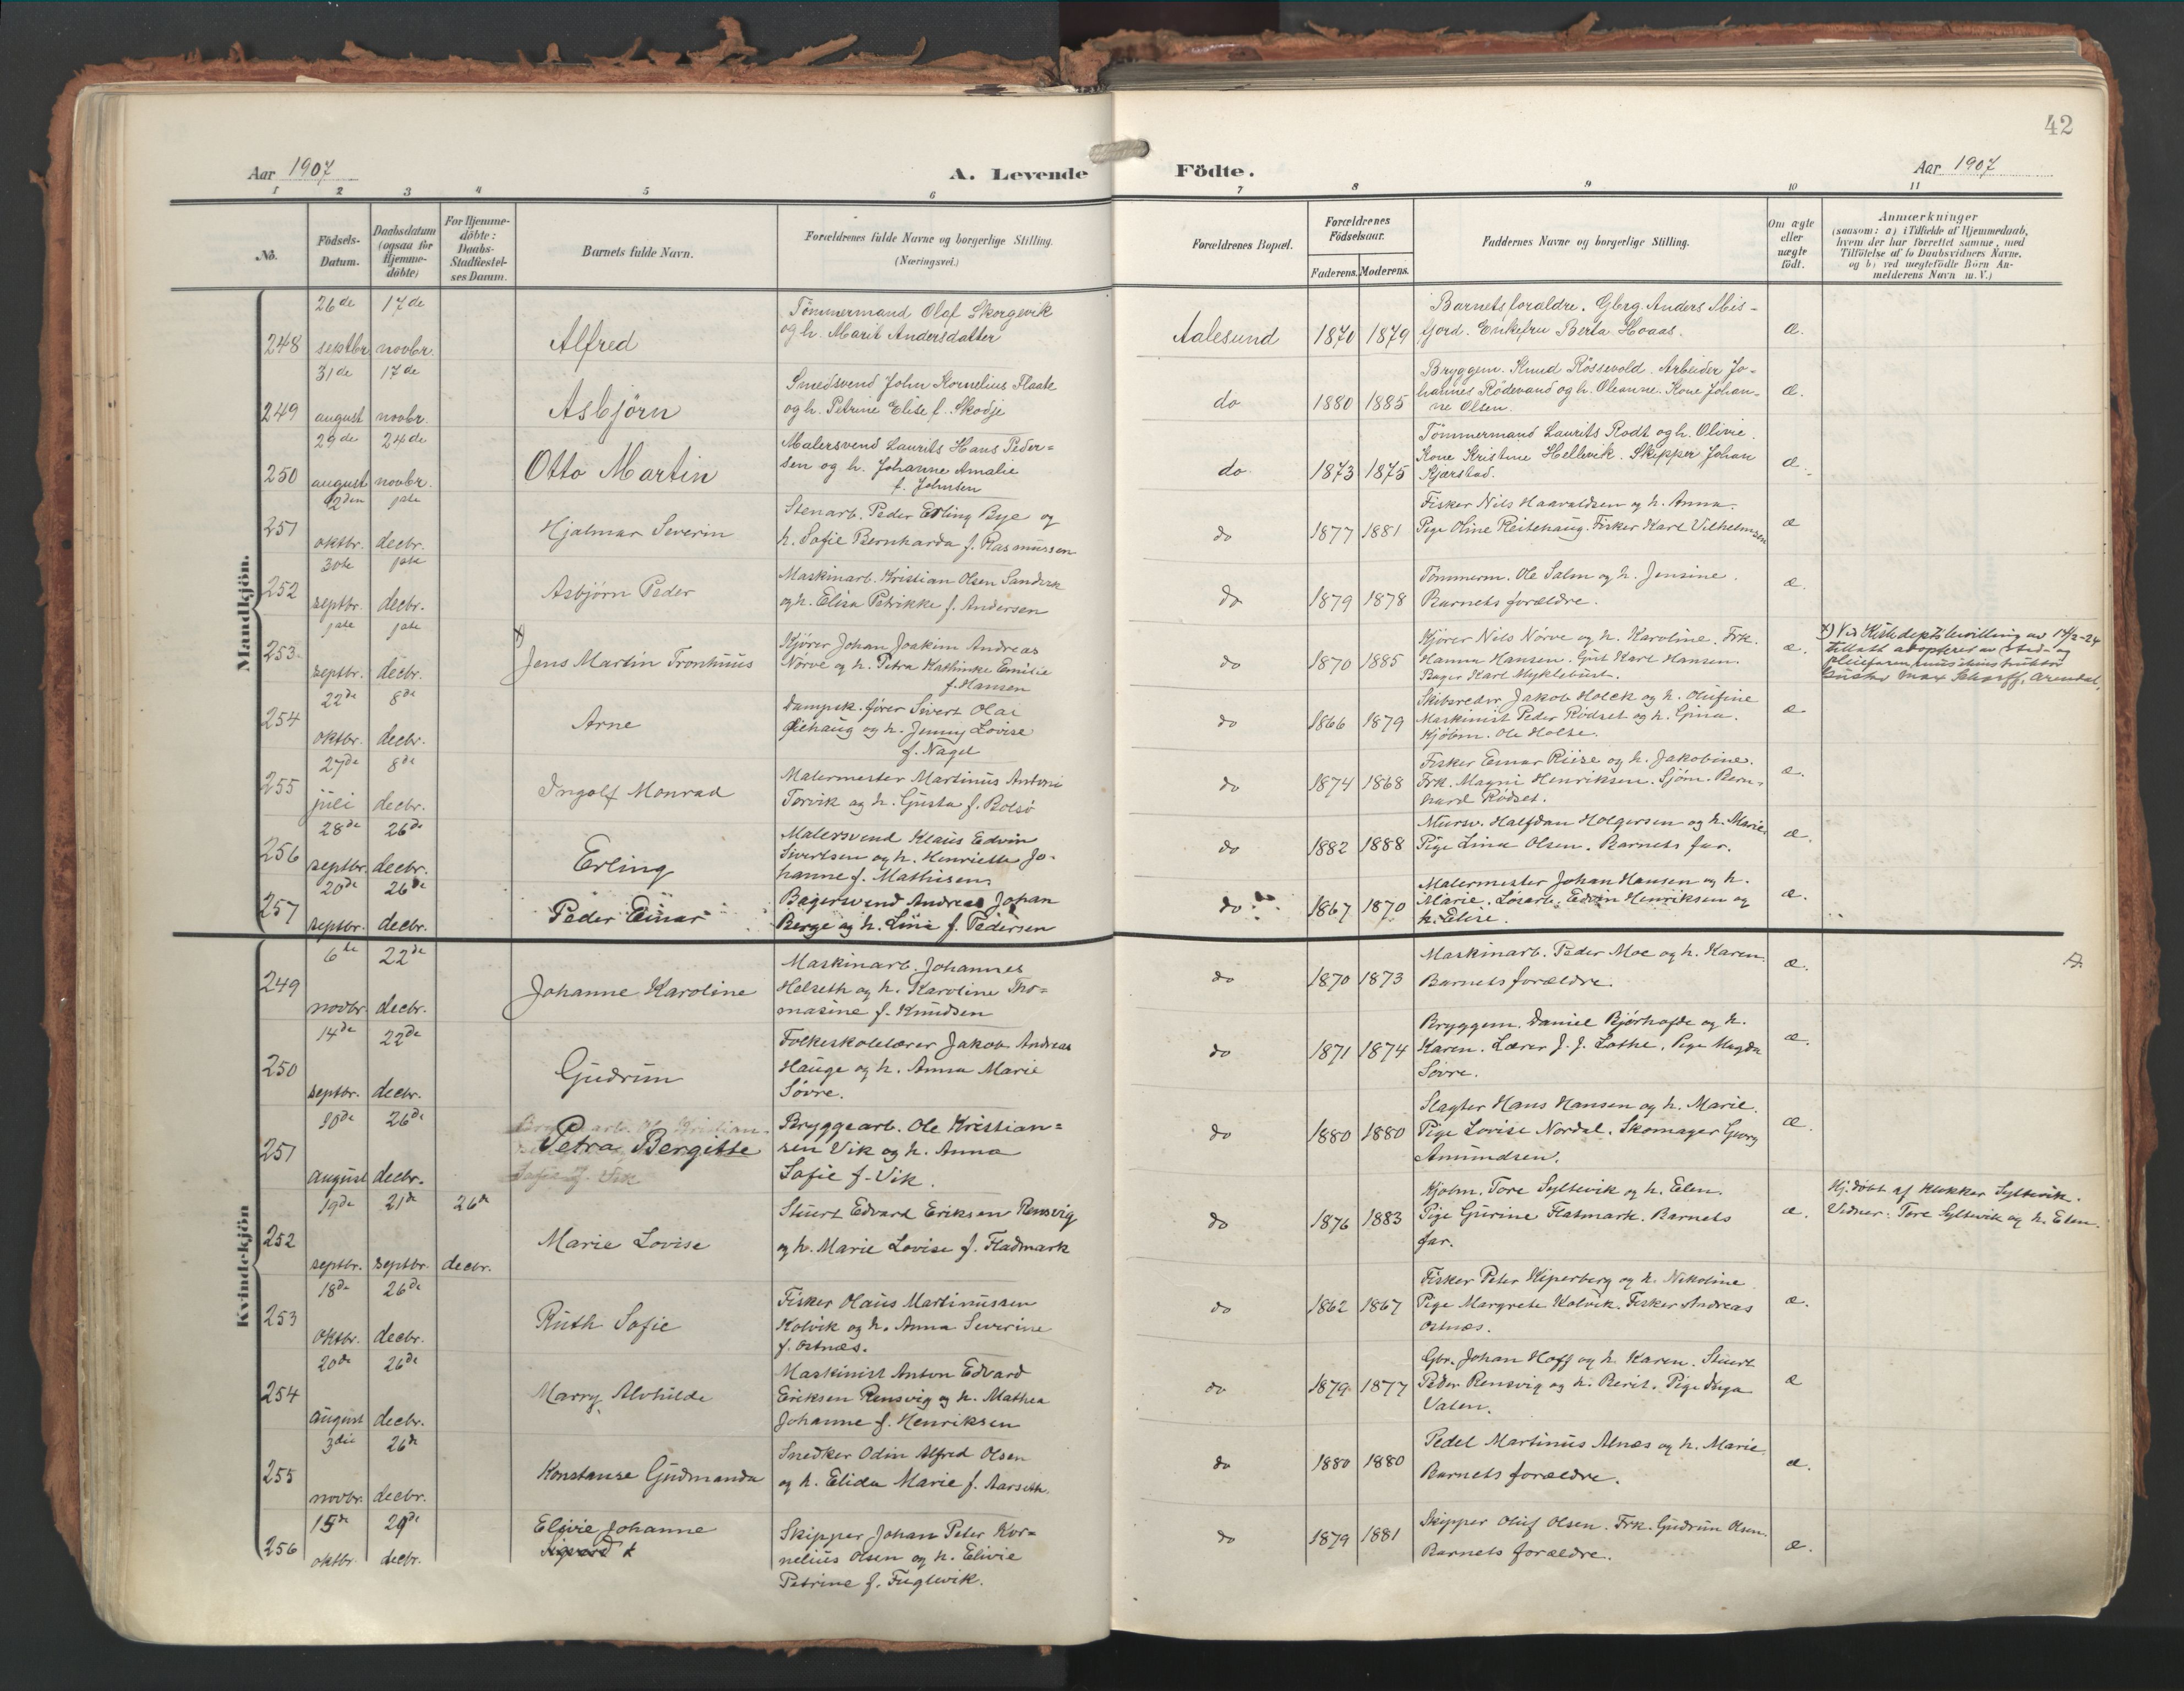 42
Aar 1907
A. Levende Födte.
Aar 1907
1 2 3 4 5 6 7 8 9 10 11
No.
Födsels-Datum.
Daabsdatum (ogsaa for Hjemme-döbte)
For Hjemme-döbte: Daabs-Stadfæstel-ses Datum.
Barnets fulde Navn.
Forældrenes fulde Navne og borgerlige Stilling. (Næringsvei.)
Forældrenes Bopæl.
Forældrenes Födselsaar.
Faderens. Moderens.
Faddernes Navne og borgerlige Stilling.
Om ægte eller uægte födt.
Anmærkninger
(saasom: a) i Tilfælde af Hjemmedaab,
hvem der har forrettet samme, med
Tilföielse af to Daabsvidners Navne.
og b) ved uægtefödte Börn An-
melderens Navn m.V.)
Mandkjön.
248 26de septbr. 17de novbr.
Alfred
Tömmermand Olaf Skorgevik
og h. Marit Andersdatter
Aalesund 1870 1879
Barnets forældre. Gbrg. Anders Mis-
fjord. Enkefru Berta Hoaas.
æ.
249 31de august 17de novbr.
Asbjörn
Smedsvend John Kornelius Flaate
og h. Petrine Elise f. Skodje
do 1880 1885
Bryggem. Knud Rössevold. Arbeider Jo-
hannes Rödevand og h. Oleanne. Kone Johan-
ne Olsen.
æ.
250 29de august 24de novbr.
Otto Martin
Malersvend Laurits Hans Peder-
sen og h. Johanne Amalie
f. Johnsen
do 1873 1875
Tömmermand Laurits Rodt og h. Olivie.
Kone Kristine Hellevik. Skipper Johan
Kjærstad.
æ.
251 12den oktbr. 1ste decbr.
Hjalmar Severin
Stenarb. Peder Erling Bye og
h. Sofie Bernharda f. Rasmussen
do 1877 1881
Fisker Nils Haavaldsen og h. Anna.
Pige Oline Reitehaug. Fisker Karl Vilhelmsen
æ
252 30te septbr. 1ste decbr.
Asbjørn Peder
Maskinarb. Kristian Olsen Sandvik
og h. Elisa Petrikke f. Andersen
do 1879 1878
Tömmerm. Ole Salm og h. Jensine.
Barnets forældre.
æ.
253 1ste septbr. 1ste decbr.
x) Jens Martin Tronhuus
Kjörer Johan Joakim Andreas
Nörve og h. Petra Kathinke Emilie
f. Hansen
do 1870 1885
Kjörer Nils Nörve og h. Karoline. Frk.
Hanna Hansen. Gut Karl Hansen.
Bager Karl Myklebust.
æ.
x) Ved Kirkedepts bevilling av 14/2-24
tillatt adopteret av
Gustav Max Scharff, Arendal.
254 22de oktbr. 8de decbr.
Arne
Dampsk. förer Sivert Olai
Giehaug og h. Jenny Lovise
f. Nagel
do 1866 1879
Skibsreder Jakob Holck og h. Olufine
Maskinist Peder Rødset og h. Gina.
Kjöbm. Ole Holse.
æ
255 27de juli 8de decbr.
Ingolf Monrad
Malermester Martinus Antoni
Torvik og h. Gusta f. Bolsö
do 1874 1868
Fisker Einar Riise og h. Jakobine.
Frk. Magni Henriksen. Sjöm. Bern-
hard Rödset.
æ.
256 28de septbr. 26de decbr.
Erling
Malersvend Klaus Edvin
Sivertsen og h. Henriette Jo-
hanne f. Mathisen
do 1882 1888
Mursv. Halfdan Holgersen og h. Marie.
Pige Lina Olsen. Barnets far.
æ.
257 20de septbr. 26de decbr.
Peder Einar
Bagersvend Andreas Johan
Berge og h. Lina f. Pedersen
do 1867 1870
Malermester Johan Hansen og h.
Marie. Løsarb. Edvin Henriksen og
h. Elise.
æ.
Kvindekjön
249 6te novbr. 22de decbr.
Johanne Karoline
Maskinarb. Johannes
Helseth og h. Karoline Tho-
masine f. Knudsen
do 1870 1873
Maskinarb. Peder Moe og h. Karen.
Barnets forældre.
æ.
250 14de septbr. 22de decbr.
Gudrun
Folkeskolelærer Jakob Andreas
Hauge og h. Anna Marie
Søvre.
do 1871 1874
Bryggem. Daniel Bjørhofde og h.
Karen. Lærer J. J. Lothe. Pige Magda
Sovre.
æ.
251 10de august 26de decbr.
Petra Bergitte
Bryggearb. Ole Kristian-
sen Vik og h. Anna
Sofie f. Vik.
do 1880 1880
Slagter Hans Hansen og h. Marie.
Pige Lovise Nordal. Skomager Georg
Amundsen.
æ.
252 19de septbr. 21de septbr. 26de decbr.
Marie Lovise
Stuert Edvard Eriksen Rensvig
og h. Marie Lovise f. Fladmark
do 1876 1883
Kjøbm. Tore Syltevik og h. Elen.
Pige Gurine Flatmark. Barnets
far.
æ.
Hj. döbt af Klokker Syltevik.
Vidner: Tore Syltevik og h. Elen.
253 18de oktbr. 26de decbr.
Ruth Sofie
Fisker Olaus Martinussen
Kolvik og h. Anna Severine
f. Ostnæs.
do 1862 1867
Fisker Peter Kiperberg og h. Nikoline
Pige Margrete Kolvik. Fisker Andreas
Ostnæs.
æ.
254 20de august 26de decbr.
Marry Alvhilde
Maskinist Anton Edvard
Eriksen Rensvig og h. Mathea
Johanne f. Henriksen
do 1879 1877
Gbr. Johan Hoff og h. Karen. Stuert
Peder Rensvig og h. Berit. Pige Inga
Valen.
æ
255 3die novbr. 26de decbr.
Konstanse Gudmanda
Snedker Odin Alfred Olsen
og h. Elida Marie f. Aarseth.
do 1880 1880
Pedel Martinus Alnæs og h. Marie.
Barnets forældre.
æ.
256 15de oktbr. 29de decbr.
Elivie Johanne
Skipper Johan Peter Kor-
nelius Olsen og h. Elivie
Petrine f. Fuglevik.
do 1879 1881
Skipper Oluf Olsen. Frk. Gudrun Olsen.
Barnets forældre.
æ.